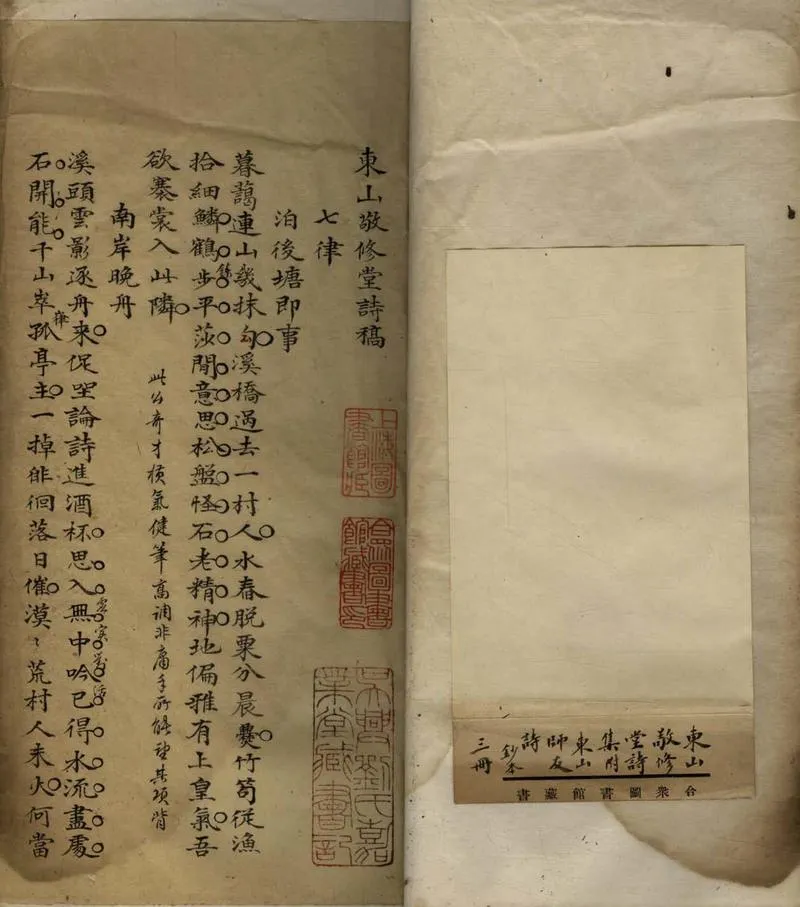 東山
敬修
堂詩
集附
東山
師友
詩
鈔本
三冊
合衆圖書館藏書
東山敬修堂詩稿
上海圖
書館藏
合衆圖書
館藏書印
吳興劉氏嘉
業堂藏書記
七律
泊後塘即事
暮藹連山幾抹勻溪橋過去一村人水舂脫粟分晨爨竹筍從漁
拾細鱗鶴步平莎閒意思松盤怪石老精神地偏雅有上皇氣吾
欲褰裳入此隣
此公奇才橫氣健筆高調非庸手所能望其項背
南岸晚舟
溪頭雲影逐舟來促坐論詩進酒杯思入無中吟已得水流盡處
虛實對活
石開能千山崒孤亭主一掉徘徊落日催漠〻荒村人未火何當